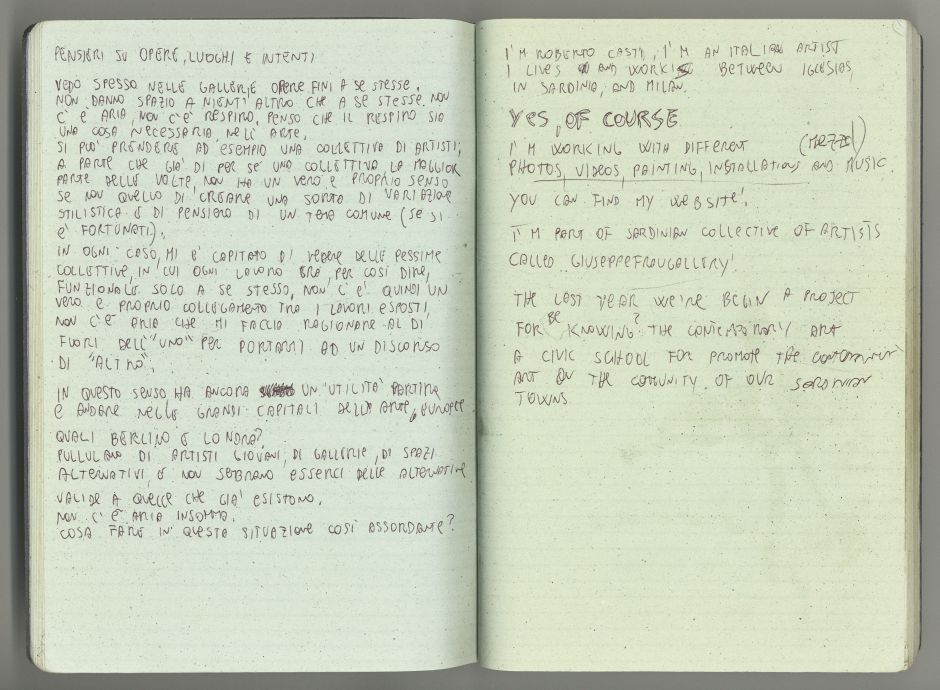 PENSIERI SU OPERE, LUOGHI E INTENTI
VEDO SPESSO NELLE GALLERIE OPERE FINI A SE STESSE,
NON DANNO SPAZIO A NIENT'ALTRO CHE A SE STESSE. NON
C'È ARIA, NON C'È RESPIRO, PENSO CHE IL RESPIRO SIA
UNA COSA NECESSARIA NELL'ARTE.
SI PUÒ PRENDERE AD ESEMPIO UNA COLLETTIVA DI ARTISTI,
A PARTE CHE GIÀ DI PER SÉ UNA COLLETTIVA LA MAGGIOR
PARTE DELLE VOLTE, NON HA UN VERO E PROPRIO SENSO
SE NON QUELLO DI CREARE UNA SORTA DI VARIAZIONE
STILISTICA E DI PENSIERO DI UN TEMA COMUNE (SE SI
È FORTUNATI).
IN OGNI CASO, MI È CAPITATO DI VEDERE DELLE PESSIME
COLLETTIVE, IN CUI OGNI LAVORO ERA, PER COSÌ DIRE,
FUNZIONALE SOLO A SE STESSO, NON C'È QUINDI UN
VERO E PROPRIO COLLEGAMETO TRA I LAVORI ESPOSTI,
NON C'È ARIA CHE MI FACCIA RAGIONARE AL DI
FUORI DELL'"UNO" PER PORTARMI AD UN DISCORSO
DI "ALTRO".
IN QUESTO SENSO HA ANCORA UN'UTILITÀ PARTIRE
E ANDARE NELLE GRANDI CAPITALI DELL'ARTE, EUROPEE
QUALI BERLINO E LONDRA?
PULLULANO DI ARTISTI GIOVANI, DI GALLERIE, DI SPAZI
ALTERNATIVI, E NON SEMBRANO ESSERCI DELLE ALTERNATIVE
VALIDE A QUELLE CHE GIÀ ESISTONO.
NON C'È ARIA INSOMMA.
COSA FARE IN QUESTA SITUAZIONE COSÌ ASSORDANTE?
I'M ROBERTO CASTI, I'M AN ITALIAN ARTIST
I LIVES AND WORKING BETWEEN IGLESIAS,
IN SARDINIA, AND MILAN.
YES, OF COURSE
I'M WORKING WITH DIFFERENT (MEZZI)
PHOTOS, VIDEOS, PAINTING, INSTALLATIONS AND MUSIC.
YOU CAN FIND MY WEBSITE!
I'M PART OF SARDINIAN COLLECTIVE OF ARTISTS
CALLED GIUSEPPEFRAUGALLERY!
THE LAST YEAR WE'RE BEGIN A PROJECT
FOR BE KNOWING? THE CONTEMPORARY ART
A CIVIC SCHOOL FOR PROMOTE THE CONTEMPORARY
ART ON THE COMUNITY OF OUR SARDINIAN
TOWNS